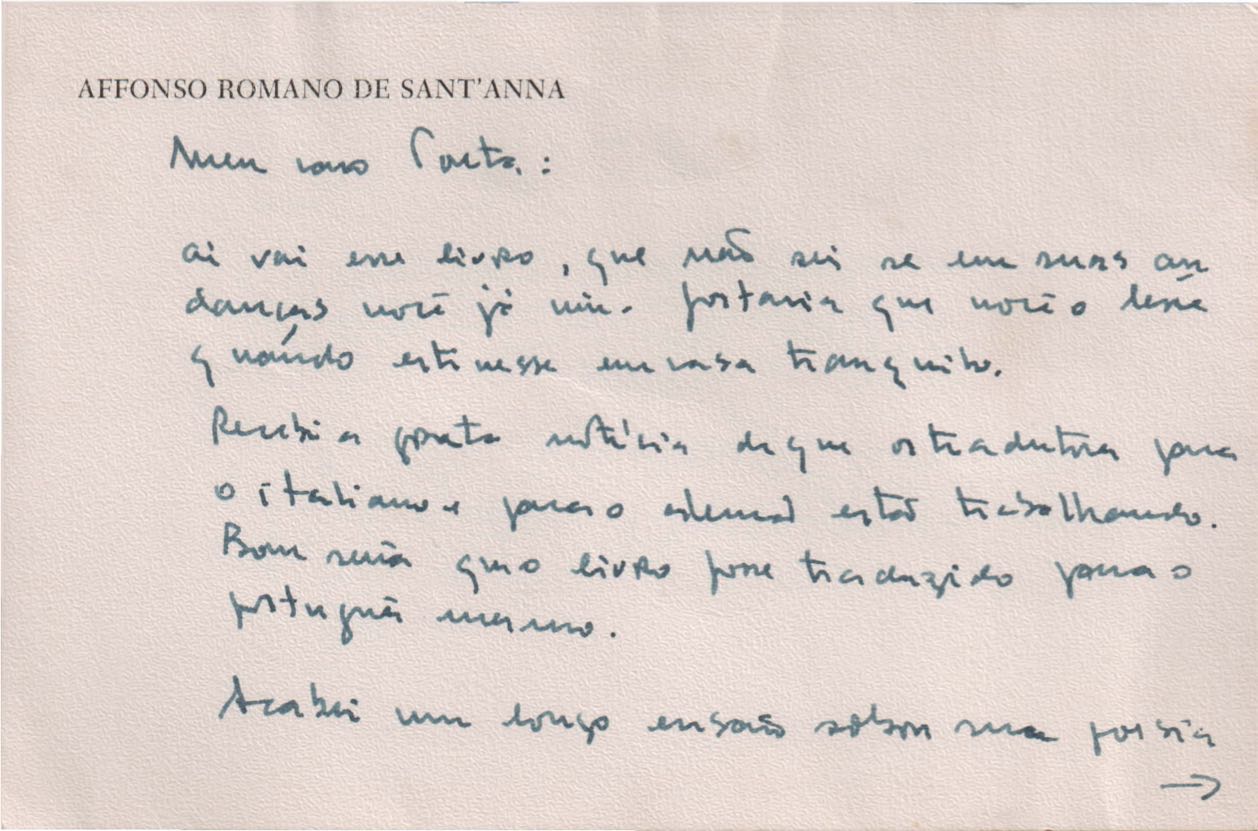 AFFONSO ROMANO DE SANT'ANNA
Meu caro Poeta:
aí vai esse livro, que não sei se em suas an
danças você já viu. Gostaria que você o lesse
quando estivesse em casa tranquilo.
Recebi a grata notícia de que os tradutores para
o italiano e para o alemão estão trabalhando.
Bom seria que o livro fosse traduzido para o
português mesmo.
Acabei um longo ensaio sobre sua poesia
→